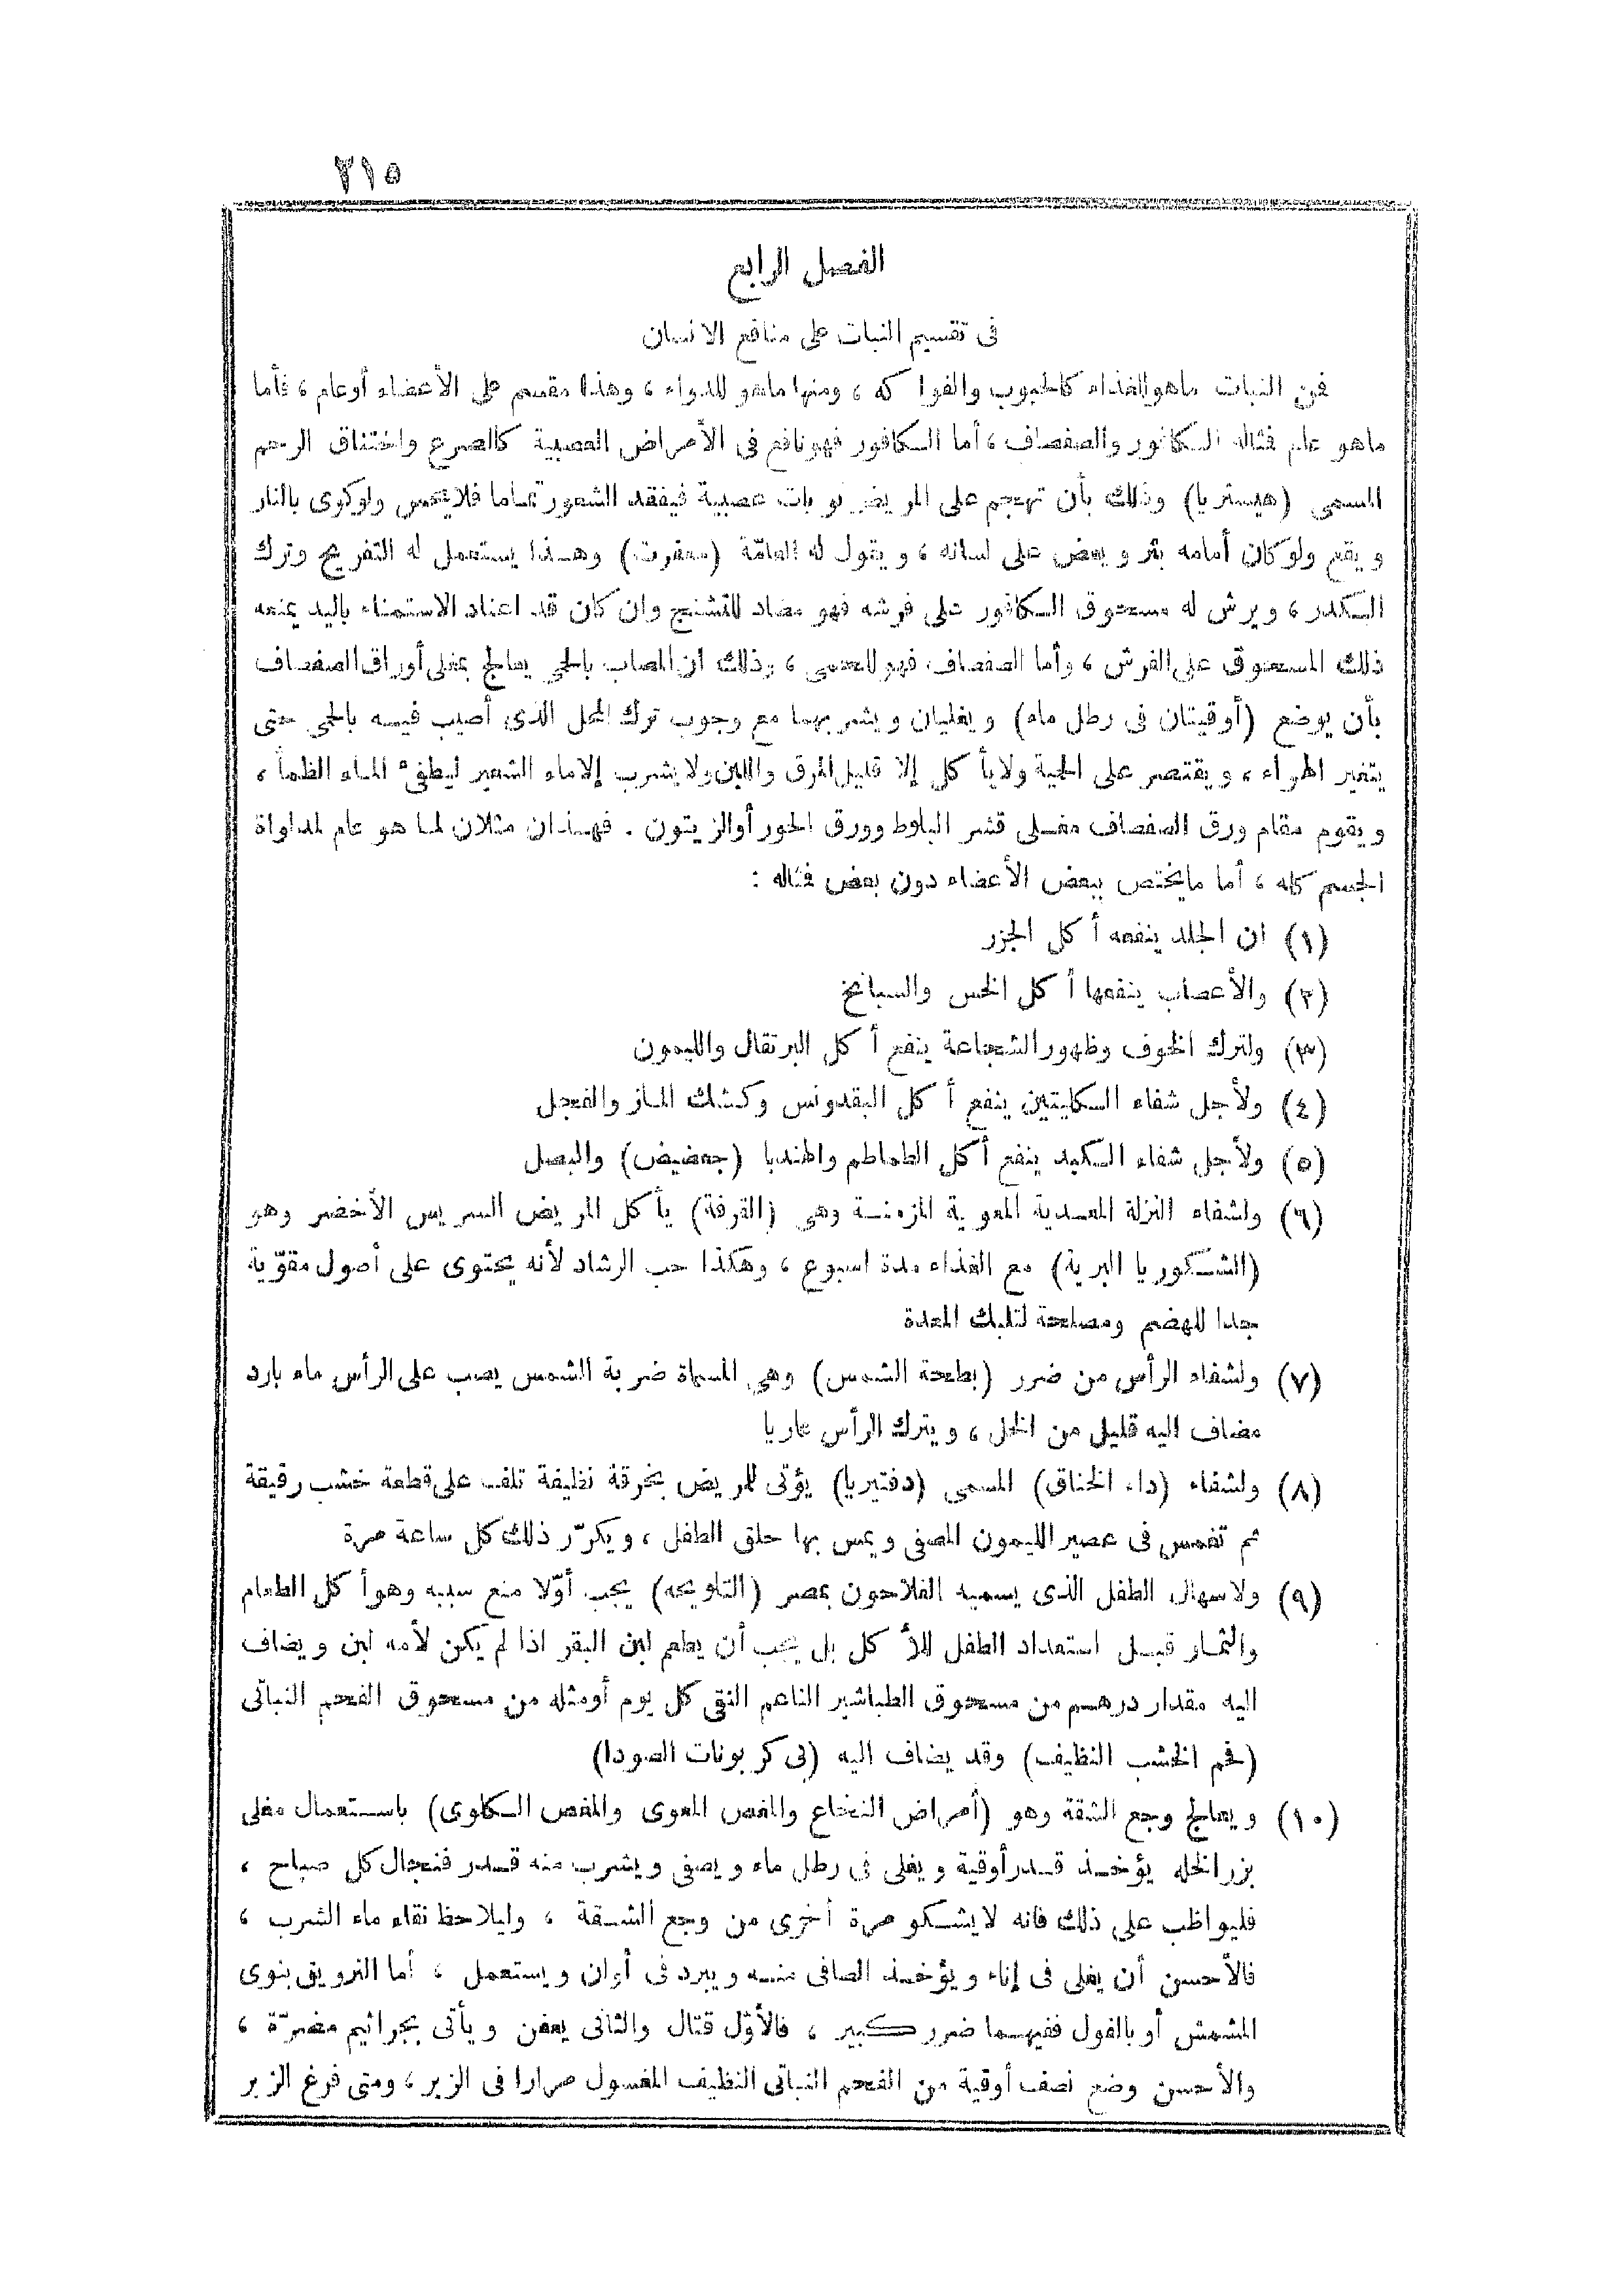 ٢١٥
الفصل الرابع
فى تقسيم النبات على منافع الانسان
فمن النبات ماهو للغذاء كالحبوب والفواكه ، ومنها ماهو للدواء ، وهذا مقسم على الأعضاء أوعام ، فأما
ماهو عام فمثاله الكافور والصفصاف ، أما الكافور فهو نافع فى الأمراض العصبية كالصرع واختناق الرحم
المسمى (هيستريا) وذلك بأن تهجم على المريض نوبات عصبية فيفقد الشعور تماما فلايحس ولوكوى بالنار
ويقع ولوكان أمامه بئر ويعض على لسانه ، ويقول له العامّة (معفرت) وهذا يستعمل له التفريح وترك
الكدر ، ويرش له مسحوق الكافور على فرشه فهو مضاد للتشنج وان كان قد اعتاد الاستمناء باليد يمنعه
ذلك المسحوق على الفرش ، وأما الصفصاف فهو للحمى ، وذلك أن المصاب بالحمى يعالج بمغلى أوراق الصفصاف
بأن يوضع (أوقيتان فى رطل ماء) ويغليان ويشربهما مع وجوب ترك المحل الذى أصيب فيه بالحمى حتى
يتغير الهواء ، ويقتصر على الحمية ولايأكل إلا قليل المرق واللبن ولايشرب إلاماء الشعير ليطفئ الماء الظمأ ،
ويقوم مقام ورق الصفصاف مغلى قشر البلوط وورق الحور أوالزيتون . فهذان مثلان لما هو عام لمداواة
الجسم كله ، أما مايختص ببعض الأعضاء دون بعض فمثاله :
(١) ان الجلد ينفعه أكل الجزر
(٢) والأعصاب ينفعها أكل الخس والسبانخ
(٣) ولترك الخوف وظهور الشجاعة ينفع أكل البرتقال والليمون
(٤) ولأجل شفاء الكليتين ينفع أكل البقدونس وكشك الماز والفجل
(٥) ولأجل شفاء الكبد ينفع أكل الطماطم والهندبا (جعضيض) والبصل
(٦) ولشفاء النزلة المعدية المعوية المزمنة وهى (القرفة) يأكل المريض السريس الأخضر وهو
(الشكوريا البرية) مع الغذاء مدة اسبوع ، وهكذا حب الرشاد لأنه يحتوى على أصول مقوّية
جدا للهضم ومصلحة لتلبك المعدة
(٧) ولشفاء الرأس من ضرر (بطحة الشمس) وهى المسماة ضربة الشمس يصب على الرأس ماء بارد
مضاف اليه قليل من الخل ، ويترك الرأس عاريا
(٨) ولشفاء (داء الخناق) المسمى (دفتيريا) يؤتى للمريض بخرقة نظيفة تلف على قطعة خشب رقيقة
ثم تغمس فى عصير الليمون المصفى ويمس بها حلق الطفل ، ويكرّر ذلك كل ساعة مرة
(٩) ولاسهال الطفل الذى يسميه الفلاحون بمصر (التلويحه) يجب أوّلا منع سببه وهو أكل الطعام
والثمار قبل استعداد الطفل للأكل بل يجب أن يطعم لبن البقر اذا لم يكن لأمه لبن ويضاف
اليه مقدار درهم من مسحوق الطباشير الناعم النقى كل يوم أومثله من مسحوق الفحم النباتى
(فحم الخشب النظيف) وقد يضاف اليه (بى كربونات الصودا)
(١٠) ويعالج وجع الشقة وهو (أمراض النخاع والمغص المعوى والمغص الكلوى) باستعمال مغلى
بزر الخله يؤخذ قدر أوقية ويغلى فى رطل ماء ويصفى ويشرب منه قدر فنجال كل صباح ،
فليواظب على ذلك فانه لايشكو مرة أخرى من وجع الشقة ، وليلاحظ نقاء ماء الشرب ،
فالأحسن أن يغلى فى إناء ويؤخذ الصافى منه ويبرد فى أوان ويستعمل ، أما الترويق بنوى
المشمش أو بالفول ففيهما ضرر كبير ، فالأوّل قتال والثانى يعفن ويأتى بجراثيم مضرّة ،
والأحسن وضع نصف أوقية من الفحم النباتى النظيف المغسول مرارا فى الزير ، ومتى فرغ الزير